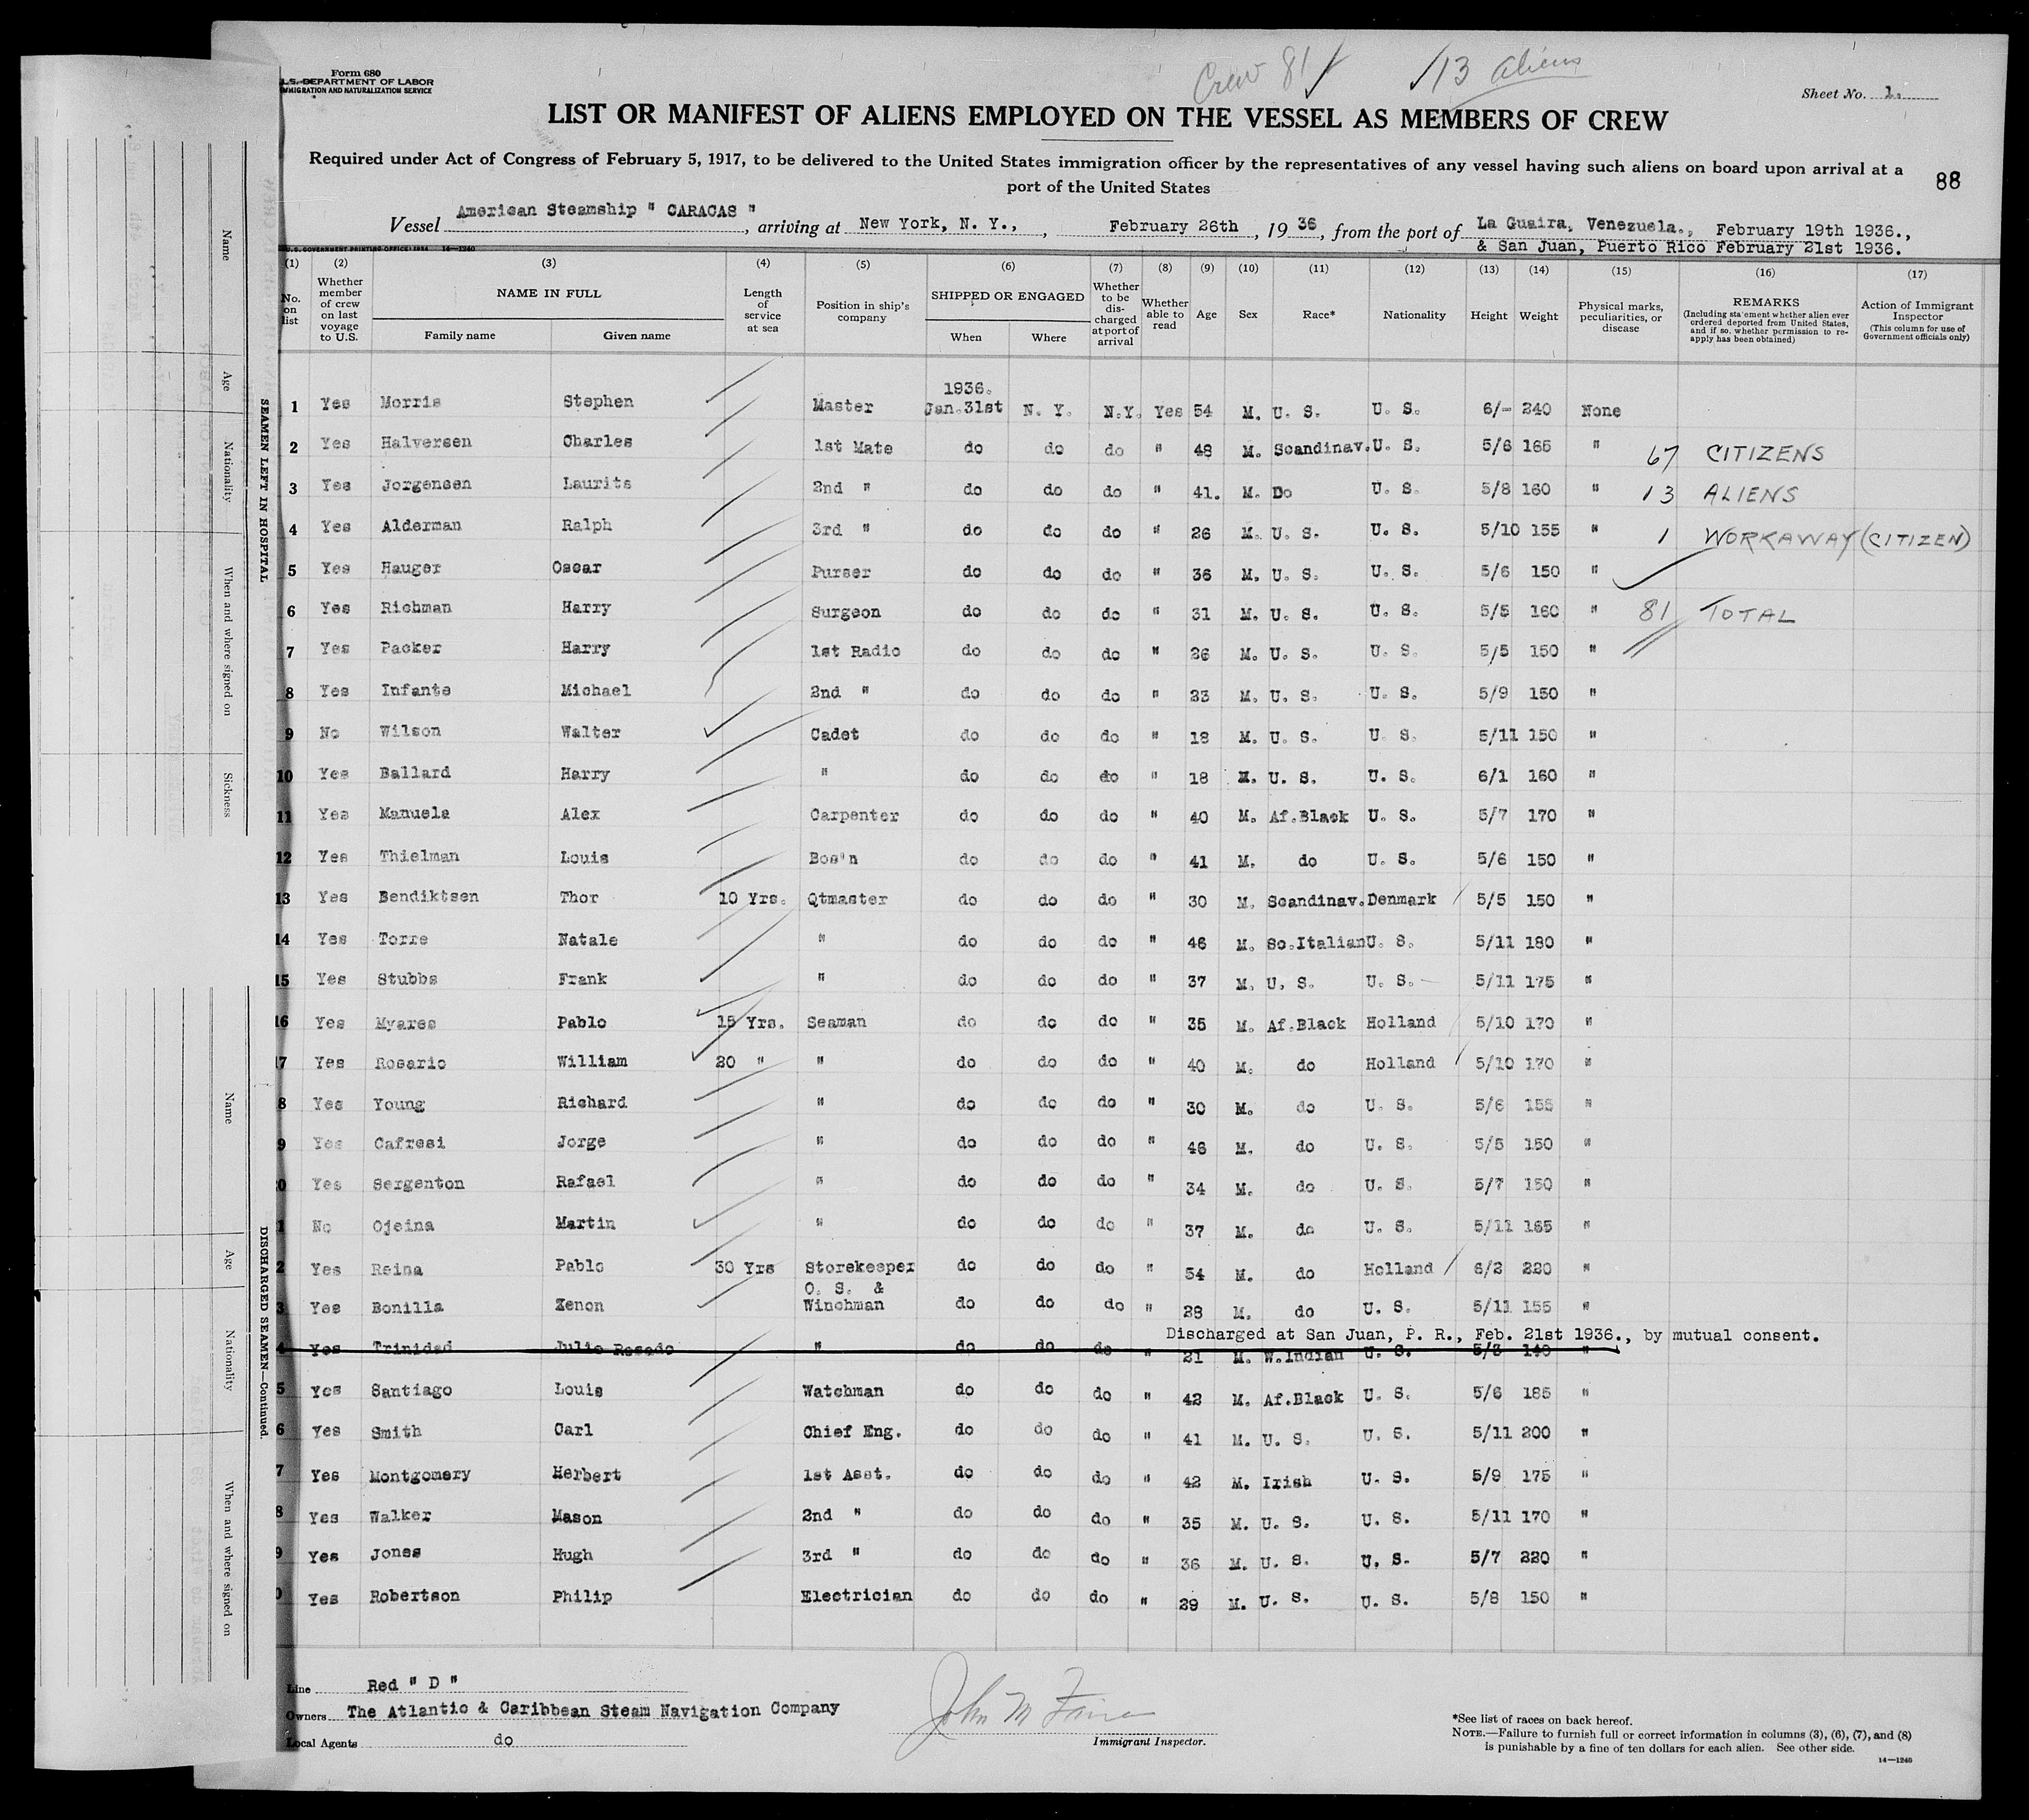 Crew 81 13 aliens
Form 680
U.S. DEPARTMENT OF LABOR
IMMIGRATION AND NATURALIZATION SERVICE
Sheet No. 1.
LIST OR MANIFEST OF ALIENS EMPLOYED ON THE VESSEL AS MEMBERS OF CREW
Required under Act of Congress of February 5, 1917, to be delivered to the United States immigration officer by the representatives of any vessel having such aliens on board upon arrival at a
port of the United States
88
Vessel American Steamship " CARACAS ", arriving at New York, N. Y., , February 26th, 19 36, from the port of La Guaira, Venezuela., February 19th 1936.,
& San Juan, Puerto Rico February 21st 1936.
U.S. GOVERNMENT PRINTING OFFICE: 1934 14—1240
(1) (2) (3) (4) (5) (6) (7) (8) (9) (10) (11) (12) (13) (14) (15) (16) (17)
No. on list
Whether member of crew on last voyage to U.S.
NAME IN FULL
Family name Given name
Length of service at sea
Position in ship's company
SHIPPED OR ENGAGED
When Where
Whether to be discharged at port of arrival
Whether able to read
Age Sex Race* Nationality Height Weight
Physical marks, peculiarities, or disease
REMARKS
(Including statement whether alien ever ordered deported from United States, and if so, whether permission to reapply has been obtained)
Action of Immigrant Inspector
(This column for use of Government officials only)
1936.
1 Yes Morris Stephen Master Jan.31st N. Y. N.Y. Yes 54 M. U. S. U. S. 6/- 240 None
2 Yes Halversen Charles 1st Mate do do do " 48 M. Scandinav. U. S. 5/6 165 " 67 CITIZENS
3 Yes Jorgensen Laurits 2nd " do do do " 41. M. Do U. S. 5/8 160 " 13 ALIENS
4 Yes Alderman Ralph 3rd " do do do " 26 M. U. S. U. S. 5/10 155 " 1 WORKAWAY (CITIZEN)
5 Yes Hauger Oscar Purser do do do " 36 M. U. S. U. S. 5/6 150 "
6 Yes Richman Harry Surgeon do do do " 31 M. U. S. U. S. 5/5 160 " 81 TOTAL
7 Yes Packer Harry 1st Radio do do do " 26 M. U. S. U. S. 5/5 150 "
8 Yes Infante Michael 2nd " do do do " 23 M. U. S. U. S. 5/9 150 "
9 No Wilson Walter Cadet do do do " 18 M. U. S. U. S. 5/11 150 "
10 Yes Ballard Harry " do do do " 18 M. U. S. U. S. 6/1 160 "
11 Yes Manuels Alex Carpenter do do do " 40 M. Af.Black U. S. 5/7 170 "
12 Yes Thielman Louis Bos'n do do do " 41 M. do U. S. 5/6 150 "
13 Yes Bendiktsen Thor 10 Yrs. Qtmaster do do do " 30 M. Scandinav. Denmark 5/5 150 "
14 Yes Torre Natale " do do do " 46 M. So.Italian U. S. 5/11 180 "
15 Yes Stubbs Frank " do do do " 37 M. U. S. U. S. 5/11 175 "
16 Yes Myares Pablo 15 Yrs. Seaman do do do " 35 M. Af.Black Holland 5/10 170 "
7 Yes Rosario William 20 " " do do do " 40 M. do Holland 5/10 170 "
8 Yes Young Richard " do do do " 30 M. do U. S. 5/6 155 "
9 Yes Cafresi Jorge " do do do " 46 M. do U. S. 5/5 150 "
0 Yes Sergenton Rafael " do do do " 34 M. do U. S. 5/7 150 "
1 No Ojeina Martin " do do do " 37 M. do U. S. 5/11 165 "
2 Yes Reina Pablo 30 Yrs Storekeeper do do do " 54 M. do Holland 6/2 220 "
O. S. &
3 Yes Bonilla Zenon Winchman do do do " 28 M. do U. S. 5/11 155 "
Discharged at San Juan, P. R., Feb. 21st 1936., by mutual consent.
4 Yes Trinidad Julio Rosado " do do do " 21 M. W.Indian U. S. 5/3 140 "
5 Yes Santiago Louis Watchman do do do " 42 M. Af.Black U. S. 5/6 185 "
6 Yes Smith Carl Chief Eng. do do do " 41 M. U. S. U. S. 5/11 200 "
7 Yes Montgomery Herbert 1st Asst. do do do " 42 M. Irish U. S. 5/9 175 "
8 Yes Walker Mason 2nd " do do do " 35 M. U. S. U. S. 5/11 170 "
9 Yes Jones Hugh 3rd " do do do " 36 M. U. S. U. S. 5/7 220 "
0 Yes Robertson Philip Electrician do do do " 29 M. U. S. U. S. 5/8 150 "
Line Red " D "
Owners The Atlantic & Caribbean Steam Navigation Company
Local Agents do
John M
Immigrant Inspector.
*See list of races on back hereof.
NOTE.—Failure to furnish full or correct information in columns (3), (6), (7), and (8)
is punishable by a fine of ten dollars for each alien. See other side.
14—1240
SEAMEN LEFT IN HOSPITAL
Name
Age
Nationality
When and where signed on
Sickness
DISCHARGED SEAMEN—Continued.
Name
Age
Nationality
When and where signed on